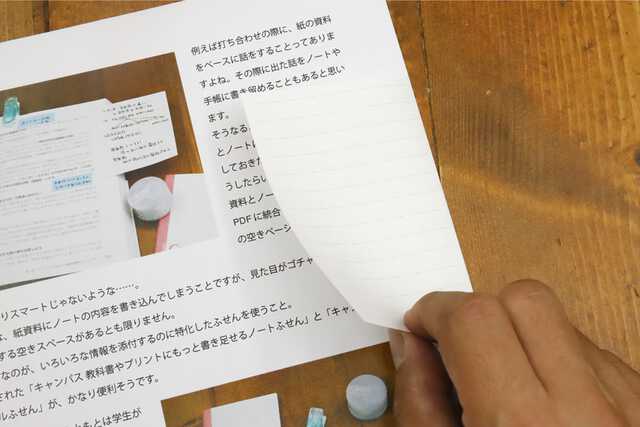 例えば打ち合わせの際に、紙の資料
をベースに話をすることってありま
すよね。その際に出た話をノートや
手帳に書き留めることもあると思い
ます。
そうなる
とノートに
しておきた
うしたらい
資料とノー
PDFに統合
の空きペー
りスマートじゃないような……。
は、紙資料にノートの内容を書き込んでしまうことですが、見た目がゴチャ
する空きスペースがあるとも限りません。
なのが、いろいろな情報を添付するのに特化したふせんを使うこと。
された「キャンパス 教科書やプリントにもっと書き足せるノートふせん」と「キャ
ルふせん」が、かなり便利そうです。
もとは学生が